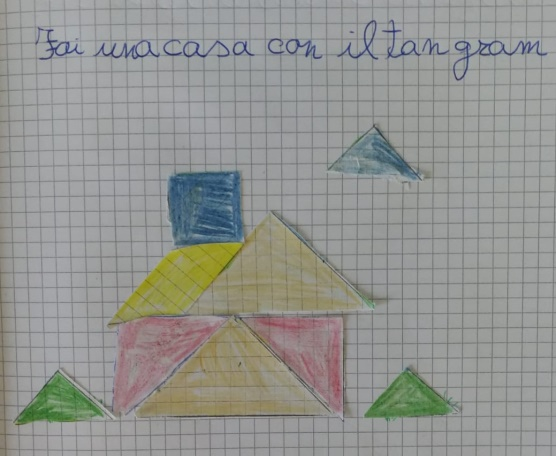 Fai una casa con il tangram